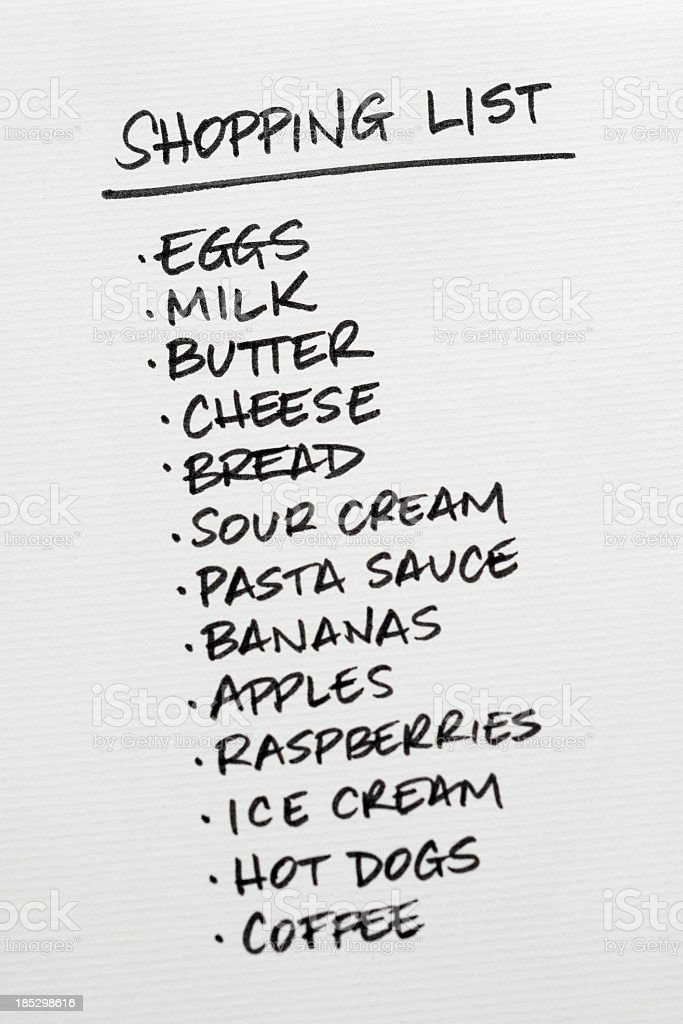 SHOPPING LIST
· EGGS
· MILK
· BUTTER
· CHEESE
· BREAD
· SOUR CREAM
· PASTA SAUCE
· BANANAS
· APPLES
· RASPBERRIES
· ICE CREAM
· HOT DOGS
· COFFEE
iStock
by Getty Images™
185298616